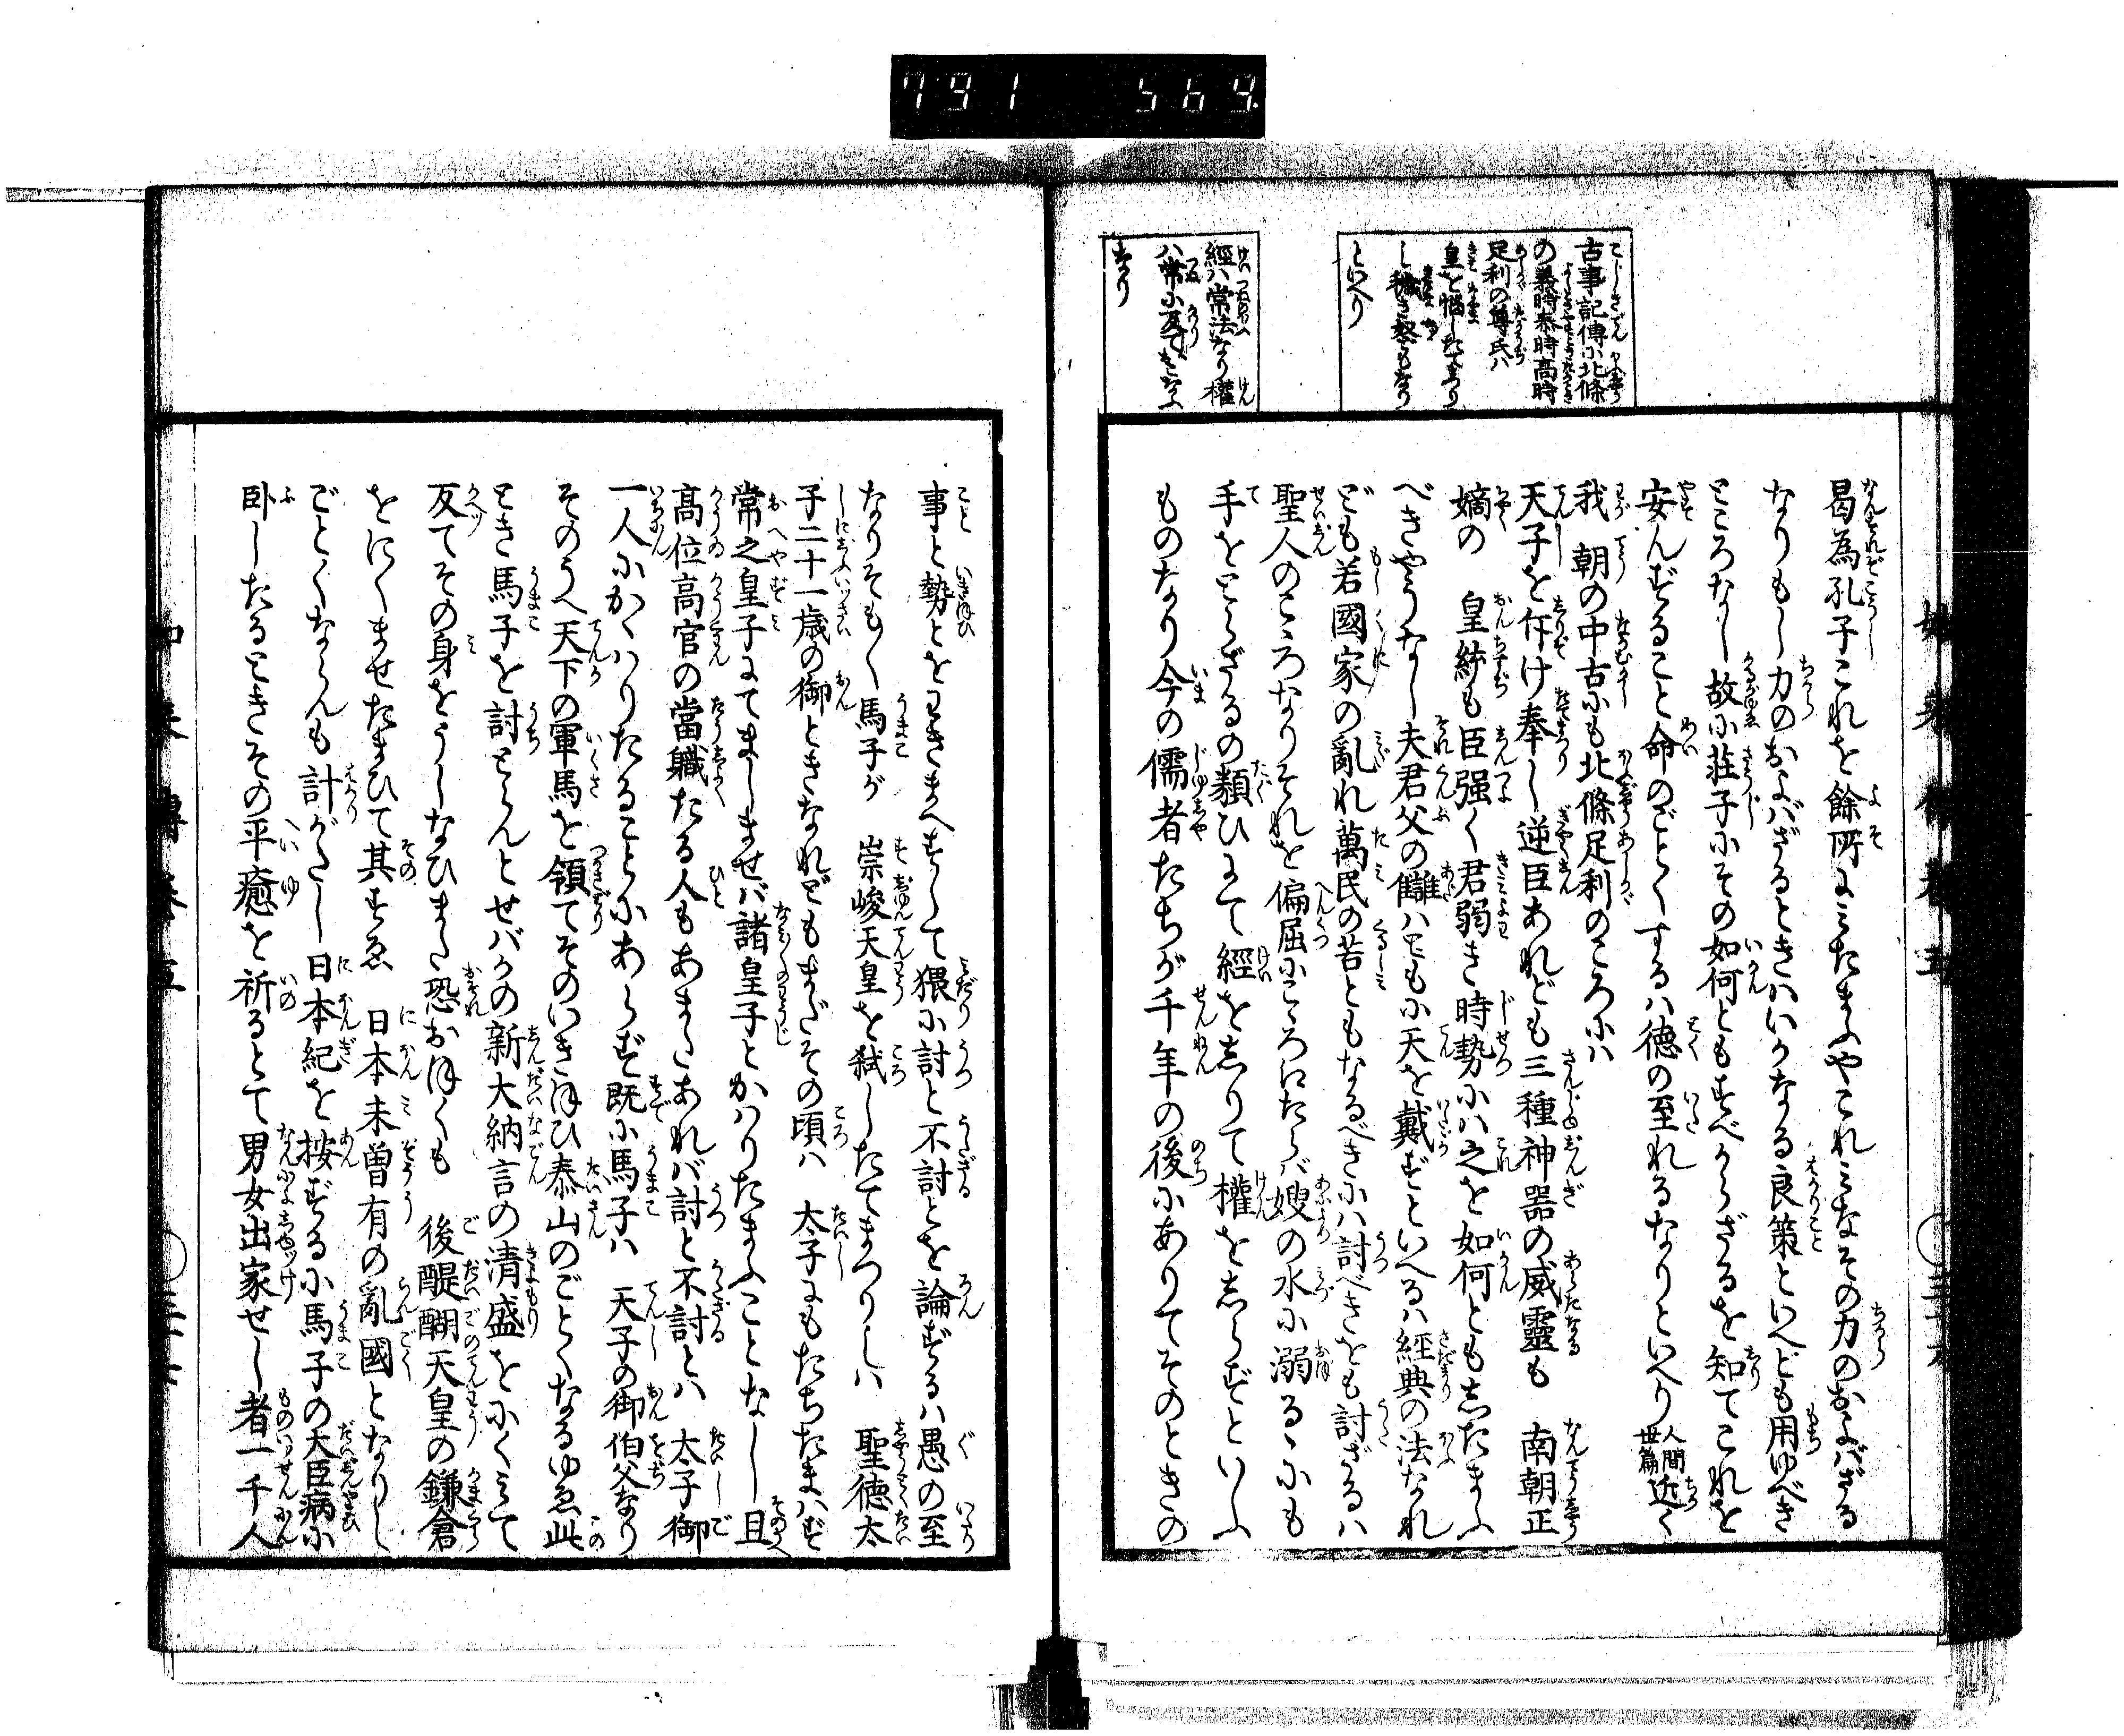 791 569.
古事記傳ニ北條
の義時泰時高時
足利の尊氏ハ
皇を惱したてまつり
し穢き奴どもなり
といへり
經ハ常法なり權
ハ常に反てをこなふ
なり
曷為孔子これを餘所にミたまふやこれミなその力のおよバざる
なりもし力のおよバざるときハいかなる良策といへども用ゆべき
ところなし故に荘子にその如何ともすべからざるを知てこれを
安んずること命のごとくするハ徳の至れるなりといへり人間世篇近く
我 朝の中古にも北條足利のころにハ
天子を斥け奉し逆臣あれども三種神器の威靈も 南朝正
嫡の 皇統も臣强く君弱き時勢にハ之を如何ともしたまふ
べきやうなし夫君父の讎ハともに天を戴ずといへるハ經典の法なれ
ども若國家の亂れ萬民の苦ともなるべきにハ討べきをも討ざるハ
聖人のこゝろなりそれを偏屈にこゝろえたらバ嫂の水に溺るゝにも
手をとらざるの類ひにて經をしりて權をしらずといふ
ものなり今の儒者たちが千年の後にありてそのときの
事と勢とをわきまへずして猥に討と不討とを論ずるハ愚の至
なりそも〳〵馬子が 崇峻天皇を弑したてまつりしハ 聖徳太
子二十一歳の御ときなれどもまだその頃ハ 太子にもたちたまはず
常之皇子にてましませバ諸皇子とかはりたまふことなし且
高位高官の當職たる人もあまたあれバ討と不討とハ 太子御
一人にかゝハりたることにあらず既に馬子ハ 天子の御伯父なり
そのうへ天下の軍馬を領てそのいきほひ泰山のごとくなるゆゑ此
とき馬子を討とらんとせバかの新大納言の清盛をにくミて
反てその身をうしなひまた恐おほくも 後醍醐天皇の鎌倉
をにくませたまひて其すゑ 日本未曽有の亂國となりし
ごとくならんも計がたし日本紀を按ずるに馬子の大臣病に
卧したるときその平癒を祈るとて男女出家せし者一千人